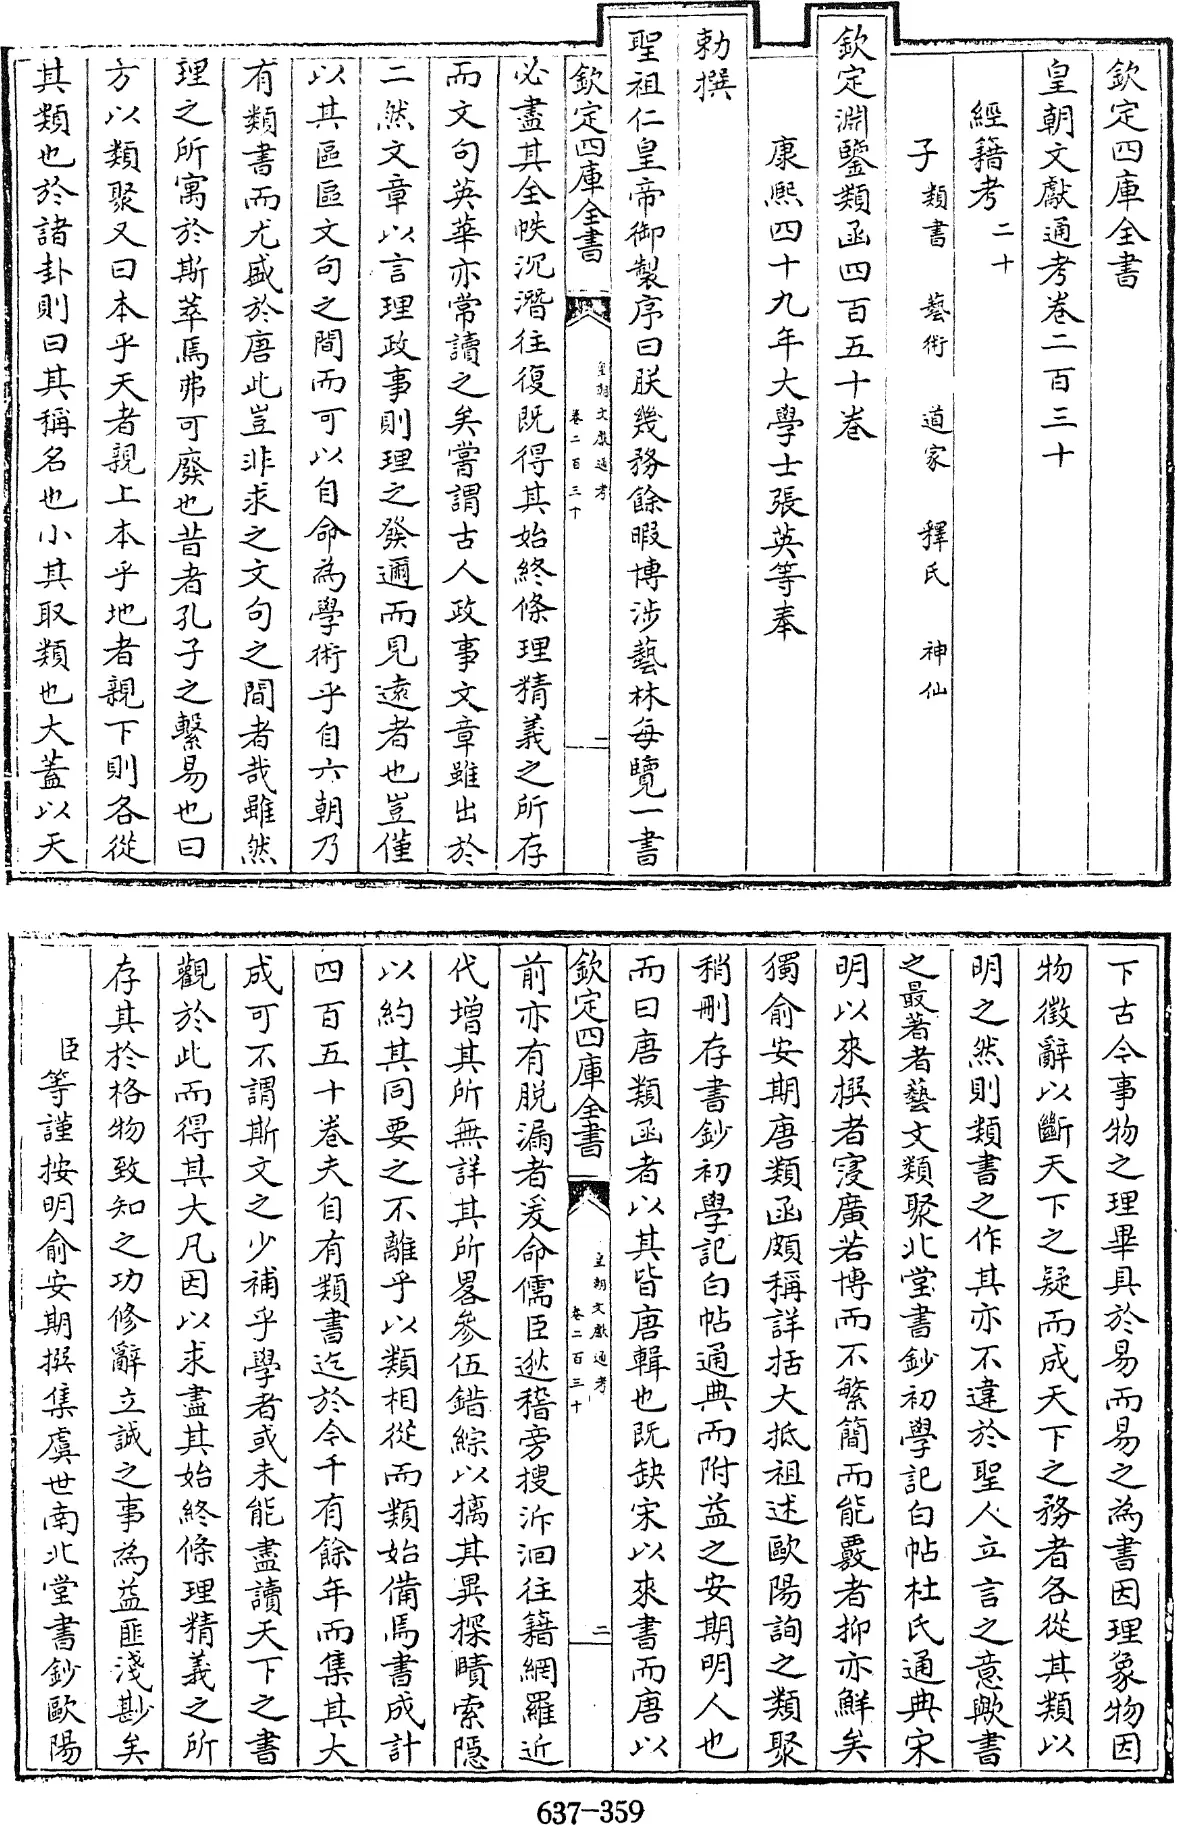 欽定四庫全書
皇朝文獻通考卷二百三十
經籍考 二十
子 類書 藝術 道家 釋氏 神仙
欽定淵鑒類函四百五十卷
康熙四十九年大學士張英等奉
勅撰
聖祖仁皇帝御製序曰朕幾務餘暇博涉藝林每覽一書
欽定四庫全書
皇朝文獻通考
卷二百三十
必盡其全帙沉潛往復既得其始終條理精義之所存
而文句英華亦常讀之矣嘗謂古人政事文章雖出於
二然文章以言理政事則理之發邇而見遠者也豈僅
以其區區文句之間而可以自命為學術乎自六朝乃
有類書而尤盛於唐此豈非求之文句之間者哉雖然
理之所寓於斯萃焉弗可廢也昔者孔子之繫易也曰
方以類聚又曰本乎天者親上本乎地者親下則各從
其類也於諸卦則曰其稱名也小其取類也大蓋以天
下古今事物之理畢具於易而易之為書因理象物因
物徵辭以斷天下之疑而成天下之務者各從其類以
明之然則類書之作其亦不違於聖人立言之意歟書
之最著者藝文類聚北堂書鈔初學記白帖杜氏通典宋
明以來撰者寖廣若博而不繁簡而能覈者抑亦鮮矣
獨俞安期唐類函頗稱詳括大抵祖述歐陽詢之類聚
稍刪存書鈔初學記白帖通典而附益之安期明人也
而曰唐類函者以其皆唐輯也既缺宋以來書而唐以
欽定四庫全書
皇朝文獻通考
卷二百三十
二
前亦有脱漏者爰命儒臣逖稽旁搜泝洄往籍網羅近
代增其所無詳其所畧參伍錯綜以摛其異探賾索隱
以約其同要之不離乎以類相從而類始備焉書成計
四百五十卷夫自有類書迄於今千有餘年而集其大
成可不謂斯文之少補乎學者或未能盡讀天下之書
觀於此而得其大凡因以求盡其始終條理精義之所
存其於格物致知之功修辭立誠之事為益匪淺尠矣
臣等謹按明俞安期撰集虞世南北堂書鈔歐陽
637-359